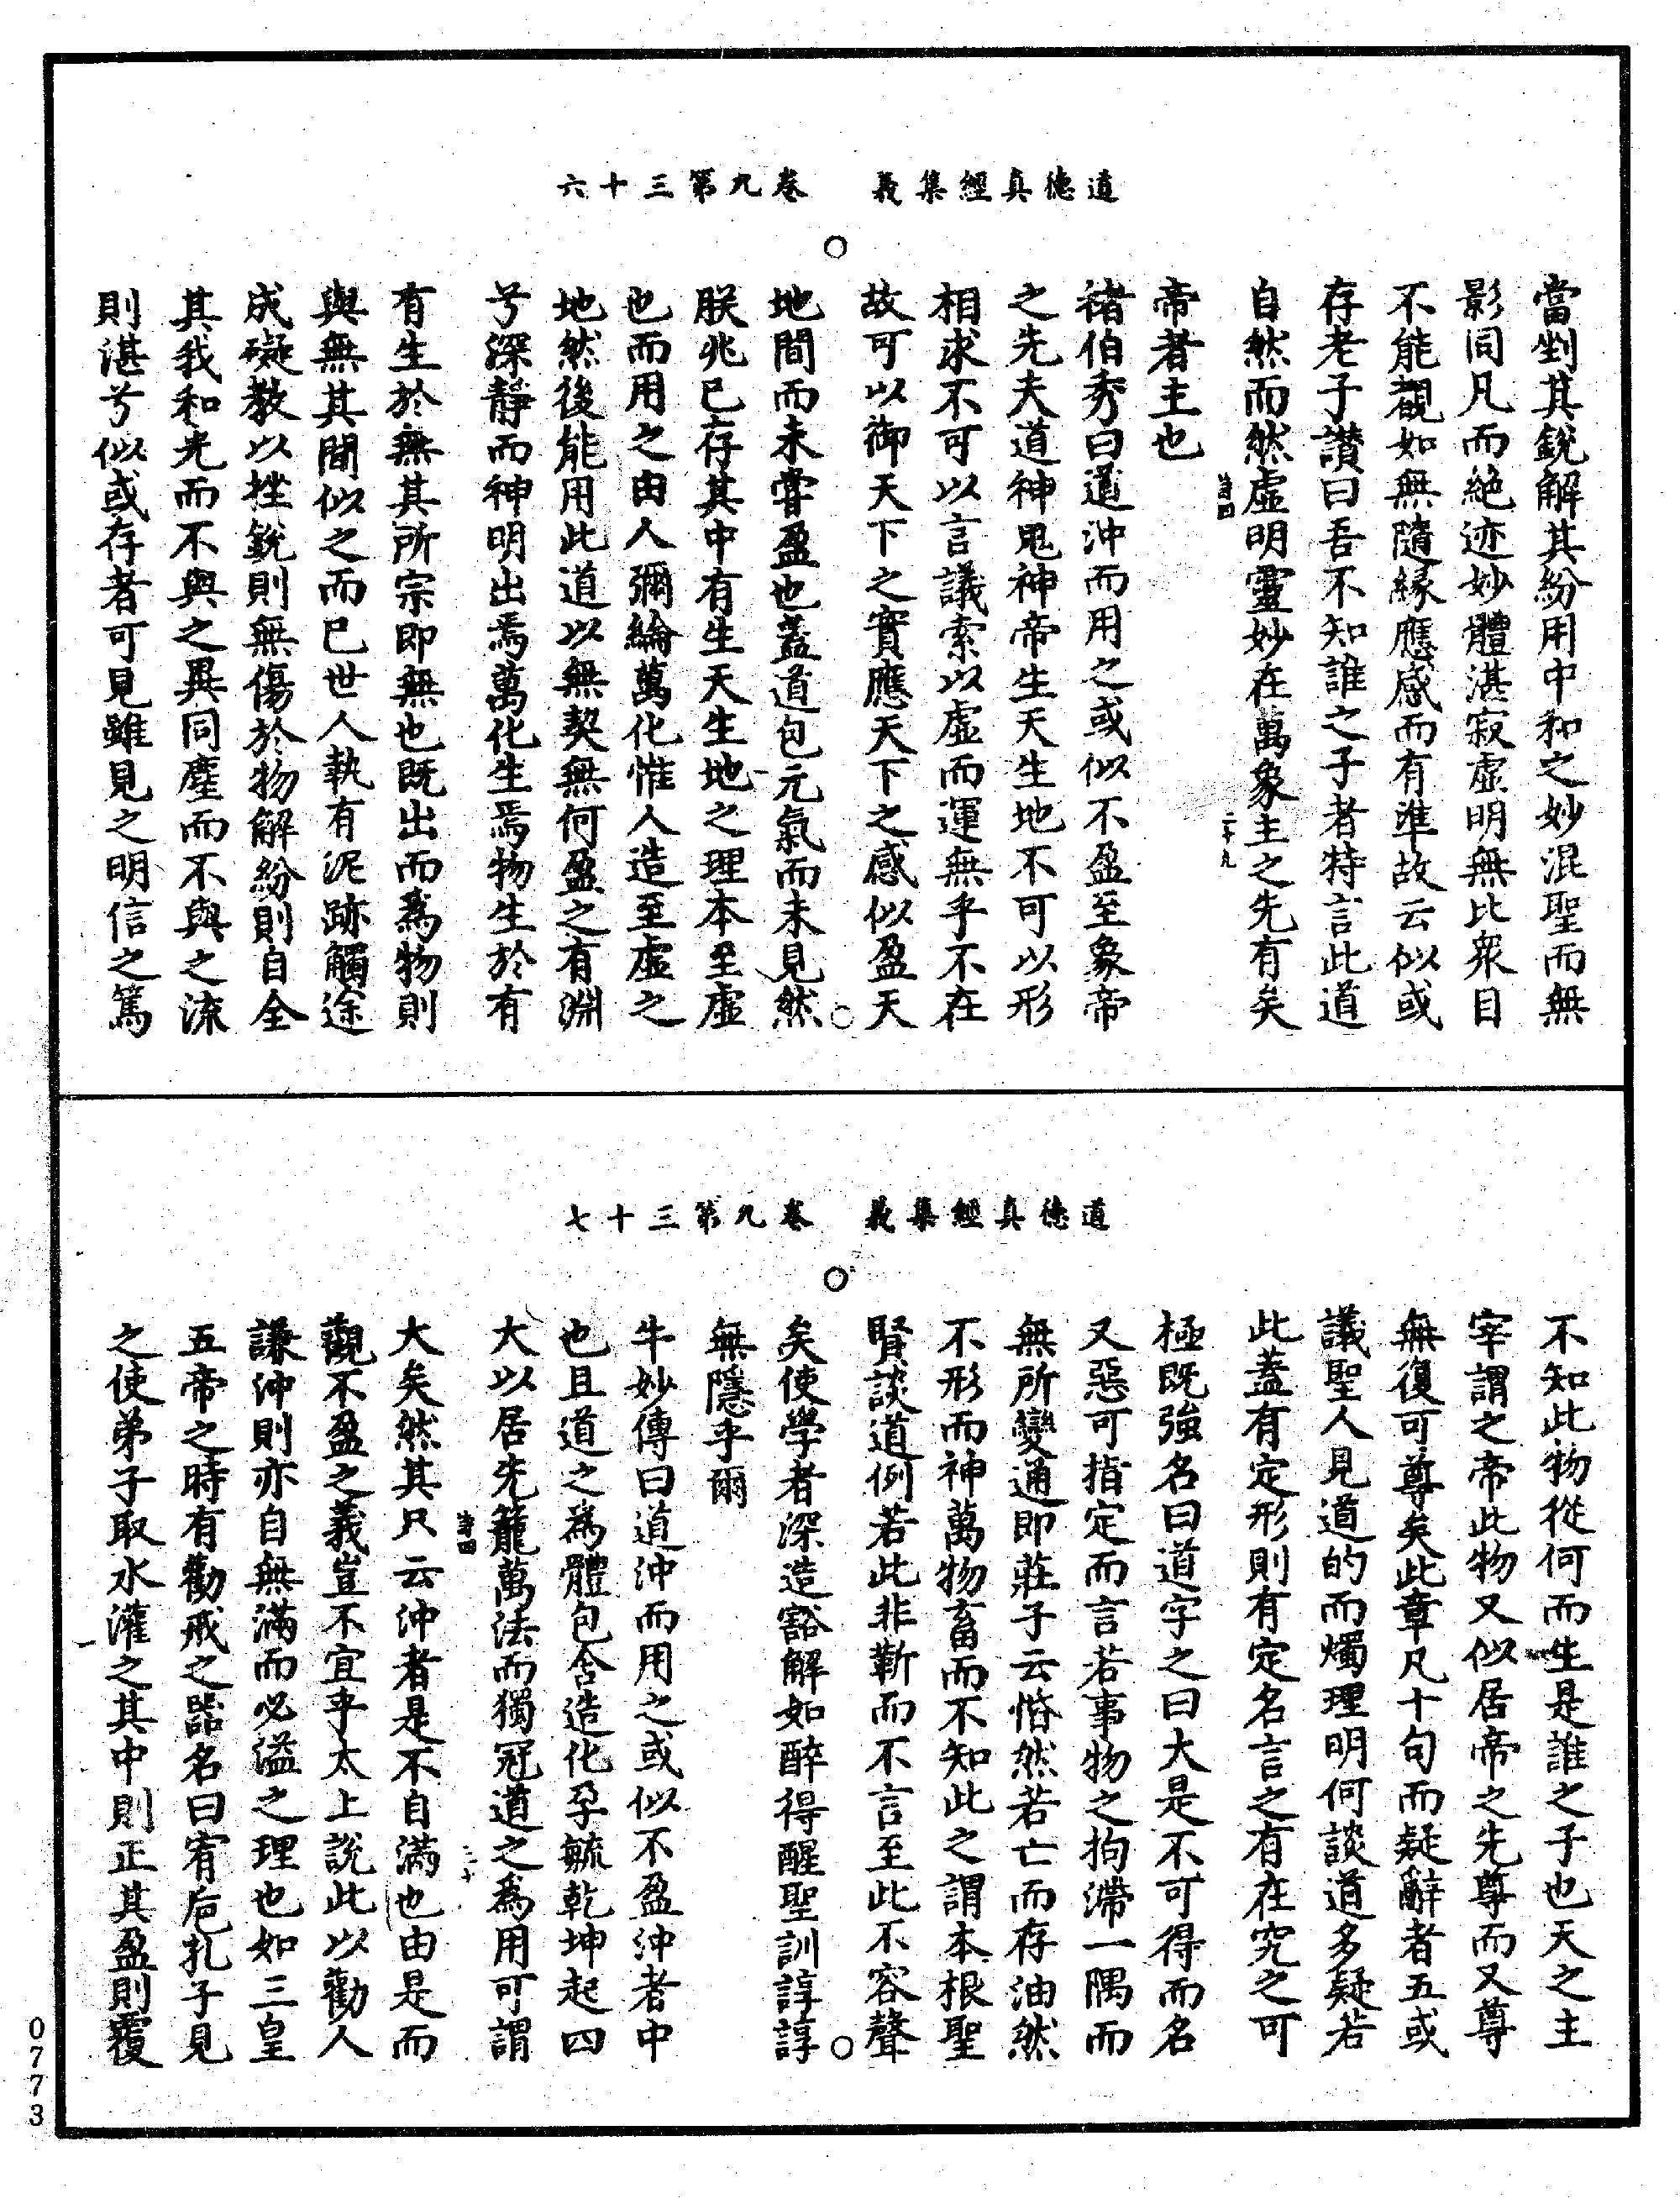 道德真經集義　卷九第三十六
當剉其銳解其紛用中和之妙混聖而無
影同凡而絕迹妙體湛寂虛明無比衆目
不能覩如無隨緣應感而有準故云似或
存老子讃曰吾不知誰之子者特言此道
自然而然虛明靈妙在萬象主之先有矣
帝者主也
褚伯秀曰道沖而用之或似不盈至象帝
之先夫道神鬼神帝生天生地不可以形
相求不可以言議索以虛而運無乎不在
故可以御天下之實應天下之感似盈天
地間而未嘗盈也蓋道包元氣而未見然
朕兆已存其中有生天生地之理本至虛
也而用之由人彌綸萬化惟人造至虛之
地然後能用此道以無契無何盈之有淵
兮深靜而神明出焉萬化生焉物生於有
有生於無其所宗即無也既出而爲物則
與無其間似之而已世人執有泥跡觸途
成礙教以挫銳則無傷於物解紛則自全
其我和光而不與之異同塵而不與之流
則湛兮似或存者可見雖見之明信之篤
道德真經集義　卷九第三十七
不知此物從何而生是誰之子也天之主
宰謂之帝此物又似居帝之先尊而又尊
無復可尊矣此章凡十句而疑辭者五或
議聖人見道的而燭理明何談道多疑若
此蓋有定形則有定名言之有在究之可
極既強名曰道字之曰大是不可得而名
又惡可指定而言若事物之拘滯一隅而
無所變通即莊子云惛然若亡而存油然
不形而神萬物畜而不知此之謂本根聖
賢談道例若此非靳而不言至此不容聲
矣使學者深造豁解如醉得醒聖訓諄諄
無隱乎爾
牛妙傳曰道沖而用之或似不盈沖者中
也且道之爲體包含造化孕毓乾坤起四
大以居先籠萬法而獨冠道之爲用可謂
大矣然其只云沖者是不自滿也由是而
觀不盈之義豈不宜乎太上說此以勸人
謙沖則亦自無滿而必溢之理也如三皇
五帝之時有勸戒之器名曰宥卮孔子見
之使弟子取水灌之其中則正其盈則覆
0773